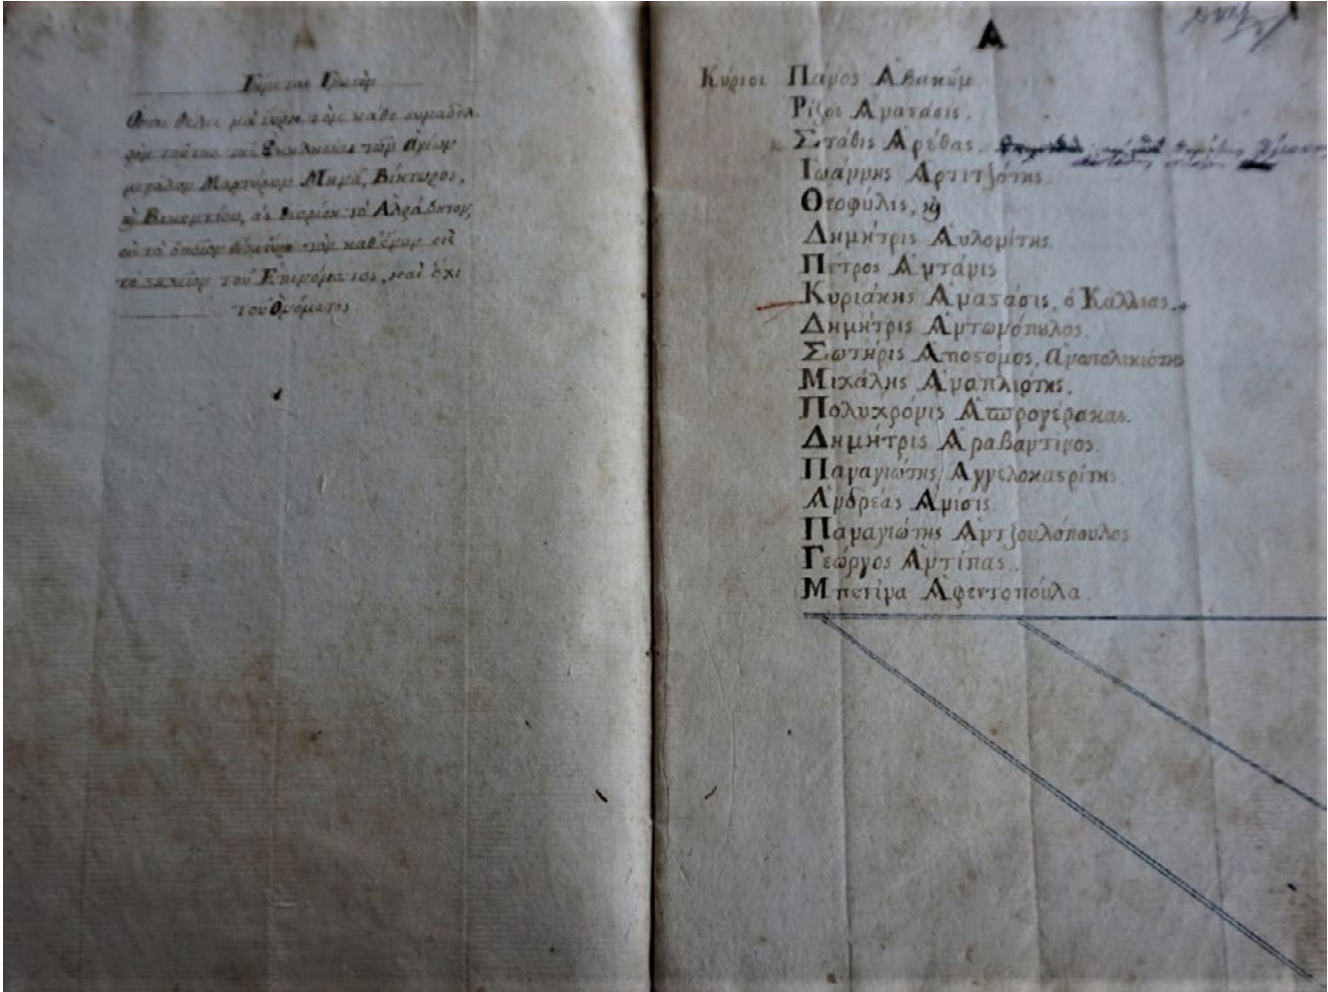 Γίνεται Γνωστὸν
Ὅποι θέλει να εὕρῃ τὸν κάθε συναδελ
φὸν τούτης τῆς Ἐκκλησίας τῶν Ἁγίων
μεγάλων Μαρτύρων Μηνᾶ, Βίκτωρος,
ϗ Βικεντίου, ἂς θεωρίσῃ τὸ Ἀλφάβητον,
εἰς τὸ ὁποῖον τὸν καθέναν εἰς
τὸ στοιχεῖον τοῦ Ἐπινόματος, καὶ ὄχι
τοῦ Ὀνόματος
Α
Κύριοι Πάνος Ἀβακὺμ
Ρίζος Αναστάσις.
Στάθις Ἀρέθας.
Ἰωάννης Ἀρτιτζότης.
Θεοφύλις, ϗ
Δημήτρις Αυλονίτης.
Πέτρος Ἀντάνις
Κυριάκης Ἀναστάσις, ὁ Κάλλιας.
Δημήτρις Ἀντωνόπυλος.
Σωτήρις Ἀπόστομος, Ἀνατολικιότης
Μιχάλης Ἀναπλιότης.
Πολυχρόνις Ἀσπρογέρακας.
Δημήτρις Ἀραβαντίνος.
Παναγιώτης Αγγελοκαστρίτης
Ἀνδρέας Ἀνίσις.
Παναγιώτης Ἀντζουλόπουλος
Γεώργος Ἀντίπας.
Μπετίνα Ἀφεντοπούλα.